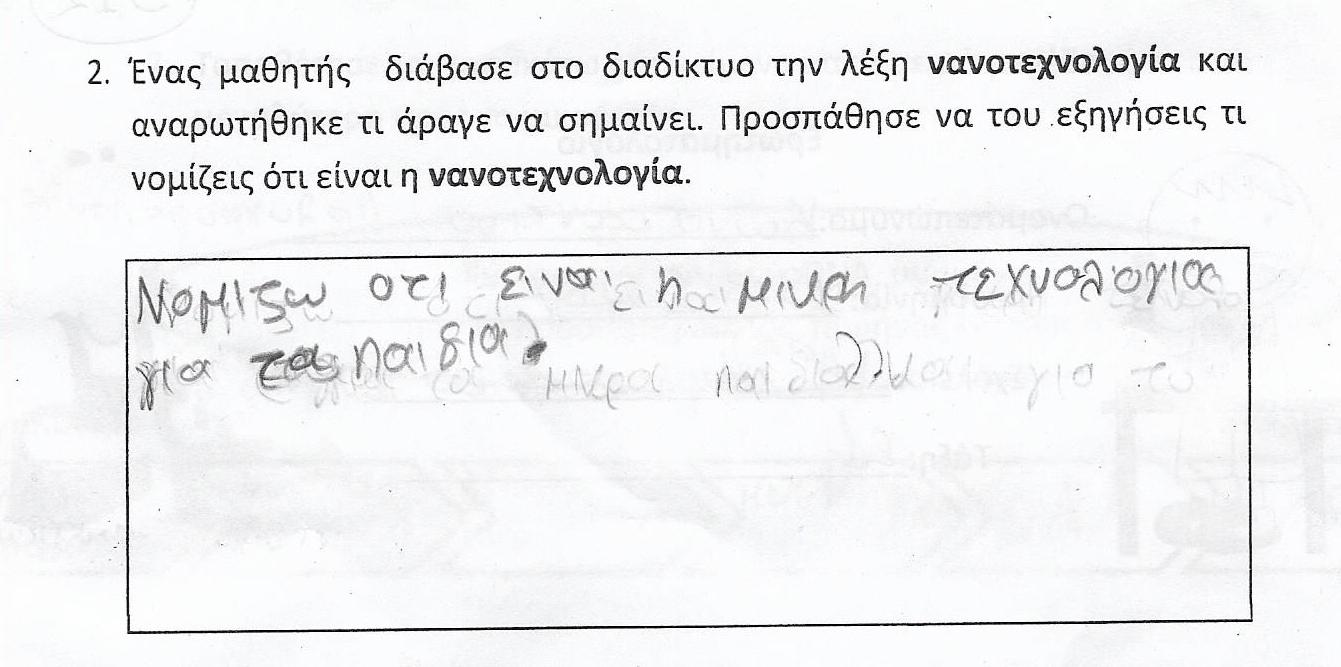 2. Ένας μαθητής διάβασε στο διαδίκτυο την λέξη νανοτεχνολογία και
αναρωτήθηκε τι άραγε να σημαίνει. Προσπάθησε να του εξηγήσεις τι
νομίζεις ότι είναι η νανοτεχνολογία.
Νομιζω οτι ειναι τεχνολογια
για τα παιδια.
μικρα παιδια για το